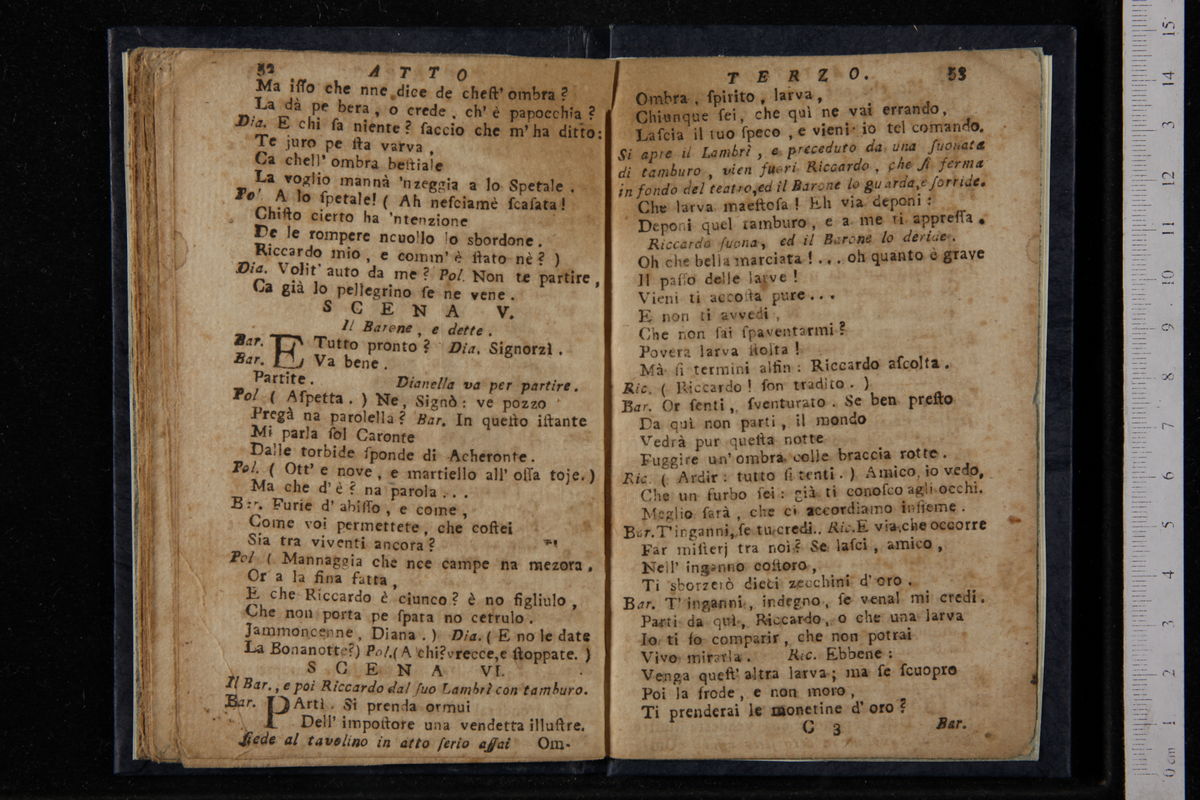 52 ATTO
Ma iſſo che nne dice de cheſt' ombra?
La dà pe bera, o crede, ch'è papocchia?
Dia. E chi ſa niente? ſaccio che m'ha ditto:
Te juro pe ſta varva,
Ca chell' ombra beſtiale
La voglio mannà 'nzeggia a lo Spetale.
Po' A lo ſpetale! ( Ah neſciamè ſcaſata!
Chiſto cierto ha 'ntenzione
De le rompere ncuollo lo sbordone.
Riccardo mio, e comm' è ſtato nè? )
Dia. Volit' auto da me? Pol. Non te partire,
Ca già lo pellegrino ſe ne vene.
SCENA V.
Il Barone, e dette.
Bar. E Tutto pronto? Dia. Signorzì.
Bar. Va bene.
Partite. Dianella va per partire.
Pol ( Aſpetta. ) Ne, Signò: ve pozzo
Pregà na parolella? Bar. In queſto iſtante
Mi parla ſol Caronte
Dalle torbide ſponde di Acheronte.
Pol. ( Ott' e nove, e martiello all' oſſa toje. )
Ma che d'è? na parola...
Bar. Furie d' abiſſo, e come,
Come voi permettete, che coſtei
Sia tra viventi ancora?
Pol ( Mannaggia che nce campe na mezora.
Or a la fina fatta,
E che Riccardo è ciunco? è no figliulo,
Che non porta pe ſpara no cetrulo.
Jammoncenne, Diana. ) Dia. ( E no le date
La Bonanotte?) Pol. ( A chi? vrecce, e ſtoppate. )
SCENA VI.
Il Bar., e poi Riccardo dal ſuo Lambrì con tamburo.
Bar. PArtì. Si prenda ormui
Dell' impoſtore una vendetta illuſtre.
ſiede al tavolino in atto ſerio aſſai Om-
TERZO. 53
Ombra, ſpirito, larva,
Chiunque ſei, che quì ne vai errando,
Laſcia il tuo ſpeco, e vieni: io tel comando.
Si apre il Lambrì, e preceduto da una ſuonata
di tamburo, vien fuori Riccardo, che ſi ferma
in fondo del teatro, ed il Barone lo guarda, e ſorride.
Che larva maeſtoſa! Eh via deponi:
Deponi quel tamburo, e a me ti appreſſa.
Riccardo ſuona, ed il Barone lo deride.
Oh che bella marciata!... oh quanto è grave
Il paſſo delle larve!
Vieni ti accoſta pure...
E non ti avvedi,
Che non ſai ſpaventarmi?
Povera larva ſtolta!
Mà ſi termini alfin: Riccardo aſcolta.
Ric. ( Riccardo! ſon tradito. )
Bar. Or ſenti, ſventurato. Se ben preſto
Da quì non parti, il mondo
Vedrà pur queſta notte
Fuggire un' ombra colle braccia rotte.
Ric. ( Ardir: tutto ſi tenti. ) Amico, io vedo,
Che un furbo ſei: già ti conoſco agli occhi.
Meglio ſarà, che ci accordiamo inſieme.
Bar. T'inganni, ſe tu credi.. Ric. E via, che occorre
Far miſterj tra noi? Se laſci, amico,
Nell' inganno coſtoro,
Ti sborzerò dieci zecchini d' oro.
Bar. T' inganni, indegno, ſe venal mi credi.
Parti da quì, Riccardo, o che una larva
Io ti ſo comparir, che non potrai
Vivo mirarla. Ric. Ebbene:
Venga queſt' altra larva; ma ſe ſcuopro
Poi la frode, e non moro,
Ti prenderai le monetine d' oro?
C 3 Bar.